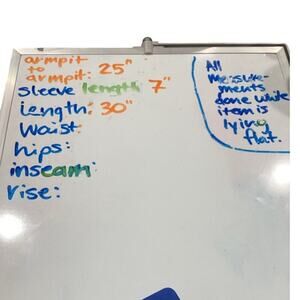 armpit
to
armpit: 25"
sleeve length: 7"
Length: 30"
Waist:
hips:
inseam:
rise:
All
Measure-
ments
done while
item is
lying
flat.